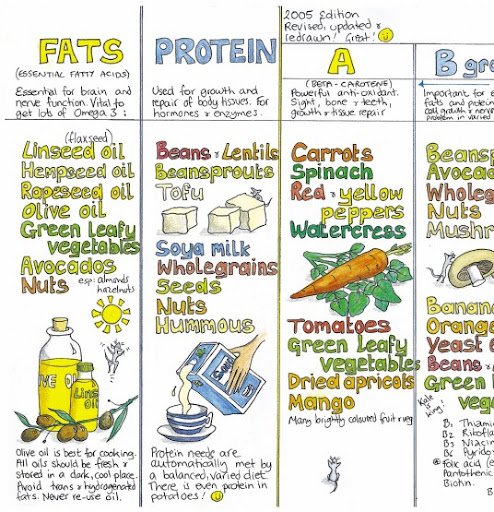 2005 Edition
Revised, updated &
redrawn! Great!
FATS
(ESSENTIAL FATTY ACIDS)
Essential for brain and
nerve function. Vital to
get lots of Omega 3 :
(flaxseed)
Linseed oil
Hempseed oil
Rapeseed oil
Olive oil
Green leafy
vegetables
Avocados
Nuts esp: almonds
hazelnuts
OLIVE OIL
Linseed
oil
Olive oil is best for cooking.
All oils should be fresh &
stored in a dark, cool place.
Avoid trans & hydrogenated
fats. Never re-use oil.
PROTEIN
Used for growth and
repair of body tissues. For
hormones & enzymes.
Beans & Lentils
Beansprouts
Tofu
Soya milk
Wholegrains
Seeds
Nuts
Hummous
Soya
Protein needs are
automatically met by
a balanced, varied diet.
There is even protein in
potatoes!
A
(BETA-CAROTENE)
Powerful anti-oxidant.
Sight, bone & teeth,
growth & tissue repair
Carrots
Spinach
Red & yellow
peppers
Watercress
Tomatoes
Green leafy
vegetables
Dried apricots
Mango
Many brightly coloured fruit & veg
B gr
Important for e
fats and protein
cell growth & nerv
problem in varied
Beans
Avoca
Wholeg
Nuts
Mushr
Banan
Orange
Yeast e
Beans &
Green l
veg
Kale
is
King!
B1 Thiami
B2 Ribofla
B3 Niacin
B6 Pyrido
Folic acid (e
Pantothenic
Biotin.
B